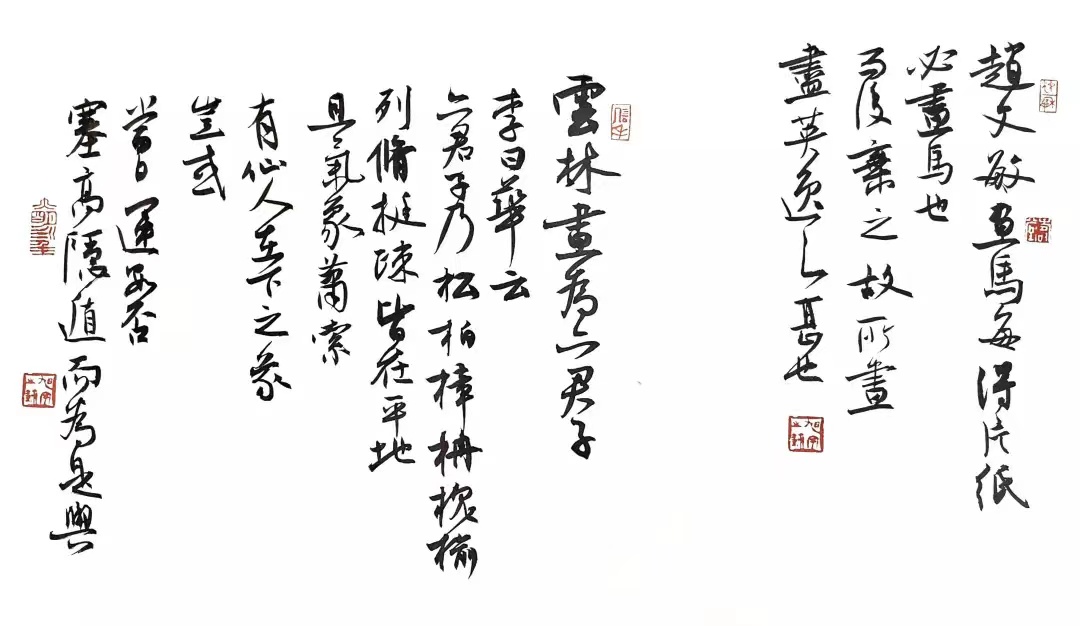 趙文敏畫馬每得片紙
必畫馬也
而後棄之故所畫
盡英逸之甚也
雲林畫為六君子
李日華云
六君子乃松柏樟楠槐榆
列脩挺疎皆在平地
且氣象蕭索
有仙人在下之象
豈或
當日運否
塞高隱遁而為是與